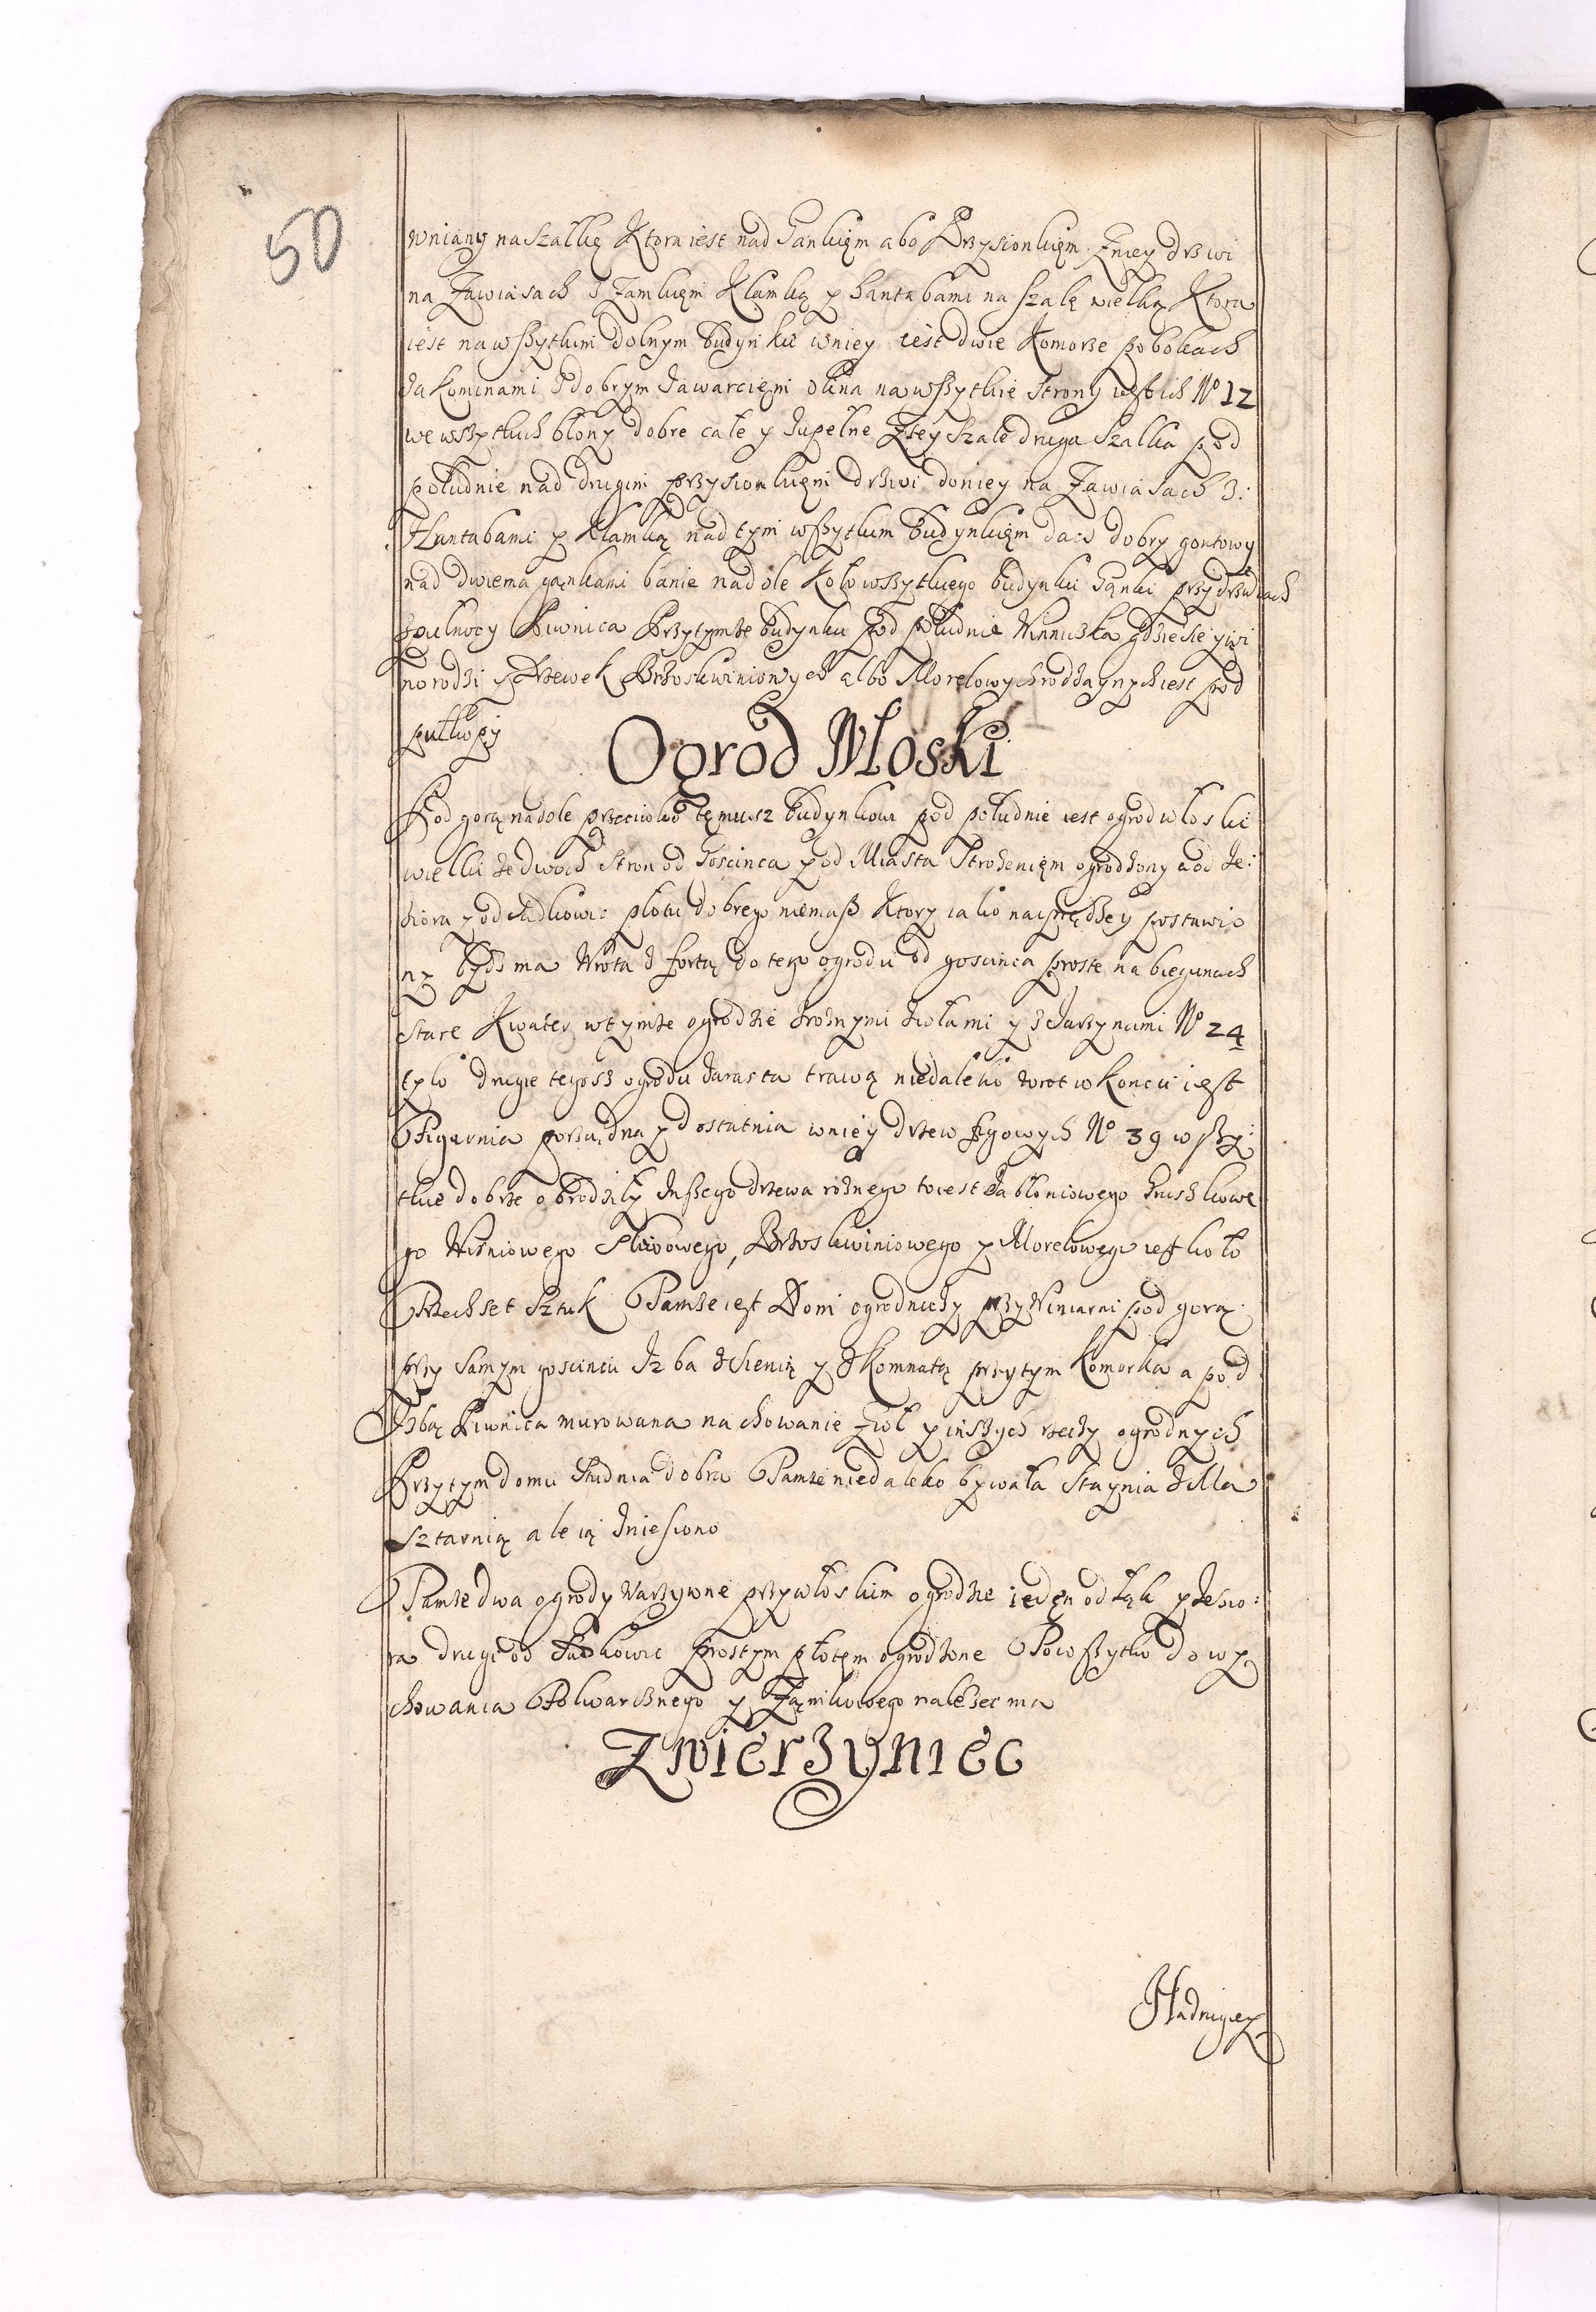 50
wniany na szalkę Ktora iest nad Gankięm abo Przysionkięm. Zniey drzwi
na Zawiasach z Zamkięm Klamką y hantabami na szalę wielką Ktora
iest na wßytkim dolnym budynku wniey iest dwie Komorze po bokach
za kominami z dobrym zawarcięm okna na wßytkie strony iest ich No 12
we wszytkich błony dobre całe y zupełne Ztey szale druga szalka pod
południe nad drugim przysionkięm drzwi do niey na Zawiasach z:
Hantabami y Klamką nad tym wßytkim budynkięm dach dobry gontowy
nad dwiema gąnkami banie na dole koło wszytkiego budynku Gąnki przy drzwiach
z pulnocy Piwnica Przytymże budynku pod południe Winniczka gdzie sie y wi
no rodzi y Drzewek Brzoskwiniowych albo Morelowych rodzaynych iest pod
pułkopy
Ogrod Włoski
Pod gorą na dole przeciwko tęmusz budynkowi pod południe iest ogrod włoski
wielki ze dwoch stron od Goscinca y od Miasta Strożenięm ogrodzony a od Ie:
ziora y od Sadkowic płotu dobrego niemaß Ktory iako nayprędzey postawio
ny bydz ma Wrota z fortą do tego ogrodu od goscinca proste na biegunach
stare Kwater wtymże ogrodzie z roznymi ziołami y z Jarzynami No 24
tylo drugie tegosz ogrodu zarasta trawą niedaleko wrot w koncu iest
Figarnia porządna y dostatnia wniey drzew figowych No 39 wßy:
tkie dobrze obrodziły Inßego drzewa roznego to iest Jabłoniowego Gruszkowe
go Wisniowego Sliwowego, Brzoskwiniowego y Morelowego iest koło
Trzechset Sztuk Tamże iest Dom ogrodniczy przy Winiarni pod gorą
przy samym goscincu Izba z Sienią y z Komnatą przytym Komorka a pod
Izbą Piwnica murowana na chowanie zioł y inszych rzeczy ogrodnych
Przytym domu studnia dobra Tamże niedaleko bywała staynia z Ma
sztarnią ale ią zniesiono
Tamże dwa ogrody warzywne przy włoskim ogrodzie iedęn od łąk y Iezio:
ra drugi od Sadkowic prostym płotęm ogrodzone To wßytko do wy
chowania Folwarcznego y Zamkowego należec ma
Zwierzyniec